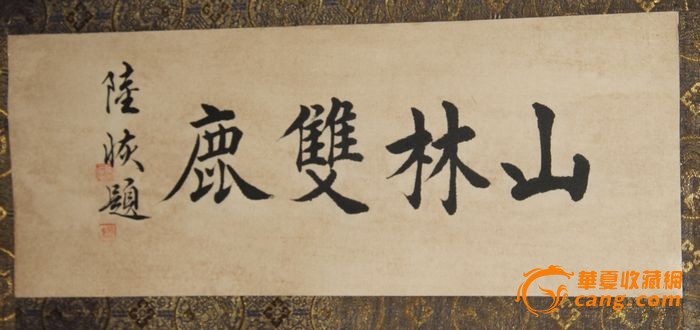 山林雙鹿
陸恢題
華夏收藏網
cang.com